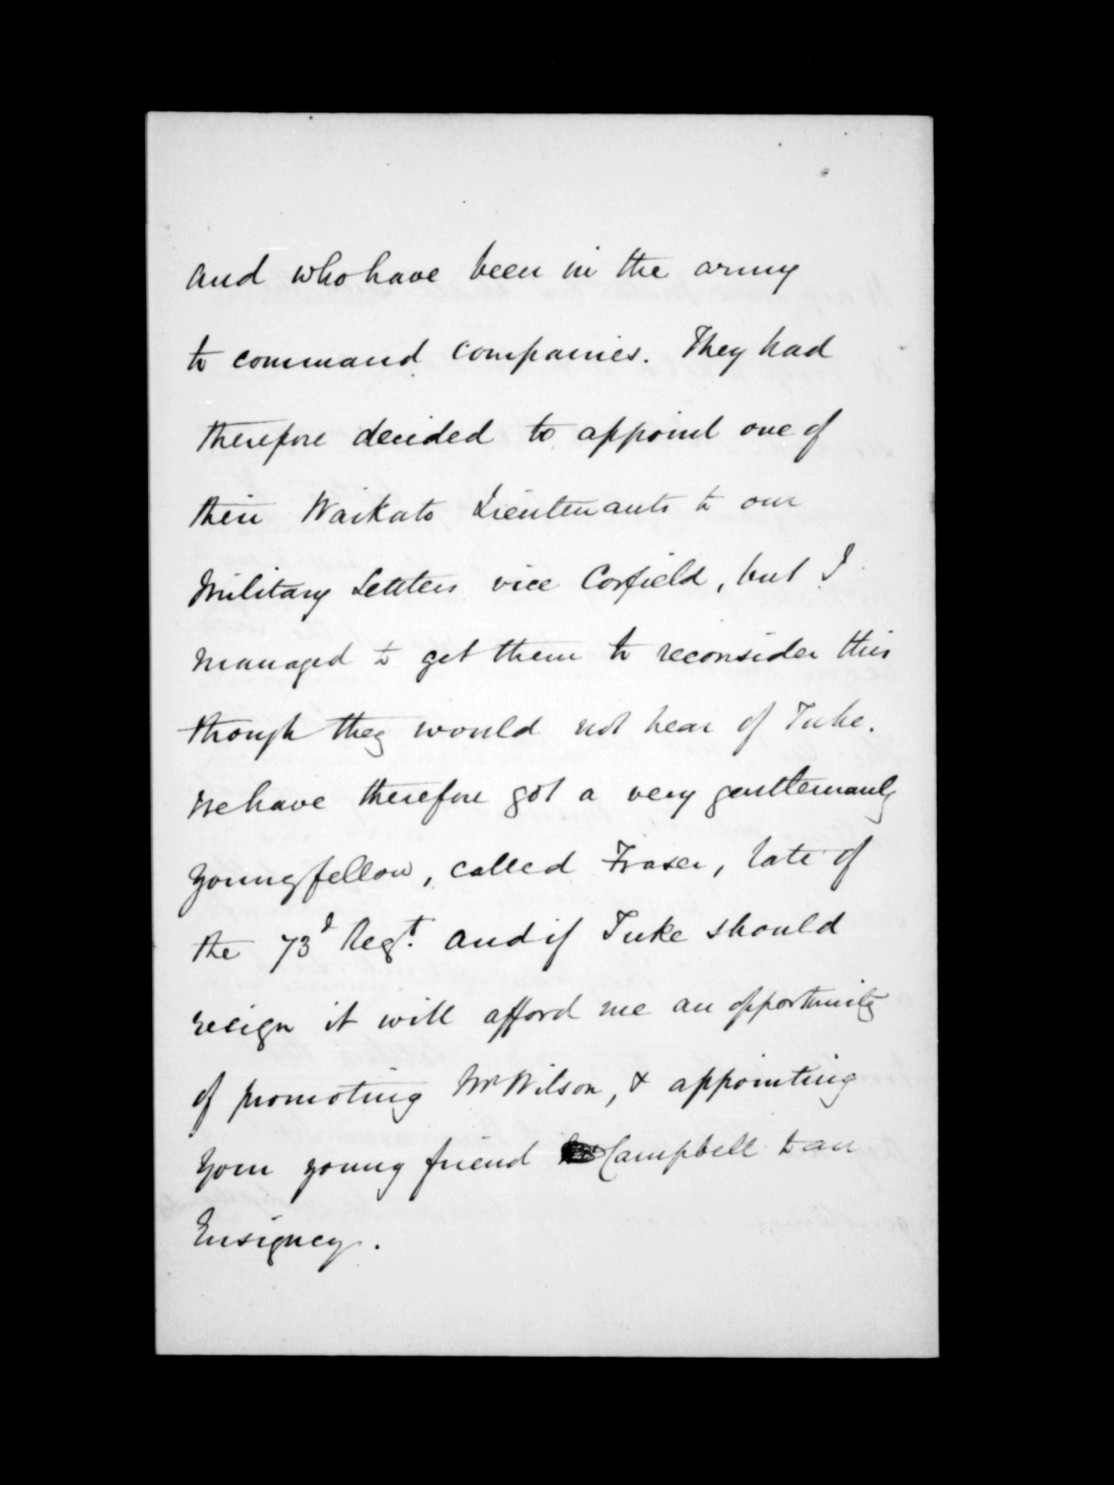 and who have been in the army
to command companies. They had
therefore decided to appoint one of
their Waikato Lieutenants to our
Military Settlers vice Corfield, but I
managed to get them to reconsider this
though they would not hear of Tuke.
We have therefore got a very gentlemanly
young fellow, called Fraser, late of
the 73d Regt. and if Tuke should
resign it will afford me an opportunity
of promoting Mr Wilson, & appointing
your young friend Campbell to an
Ensigncy.